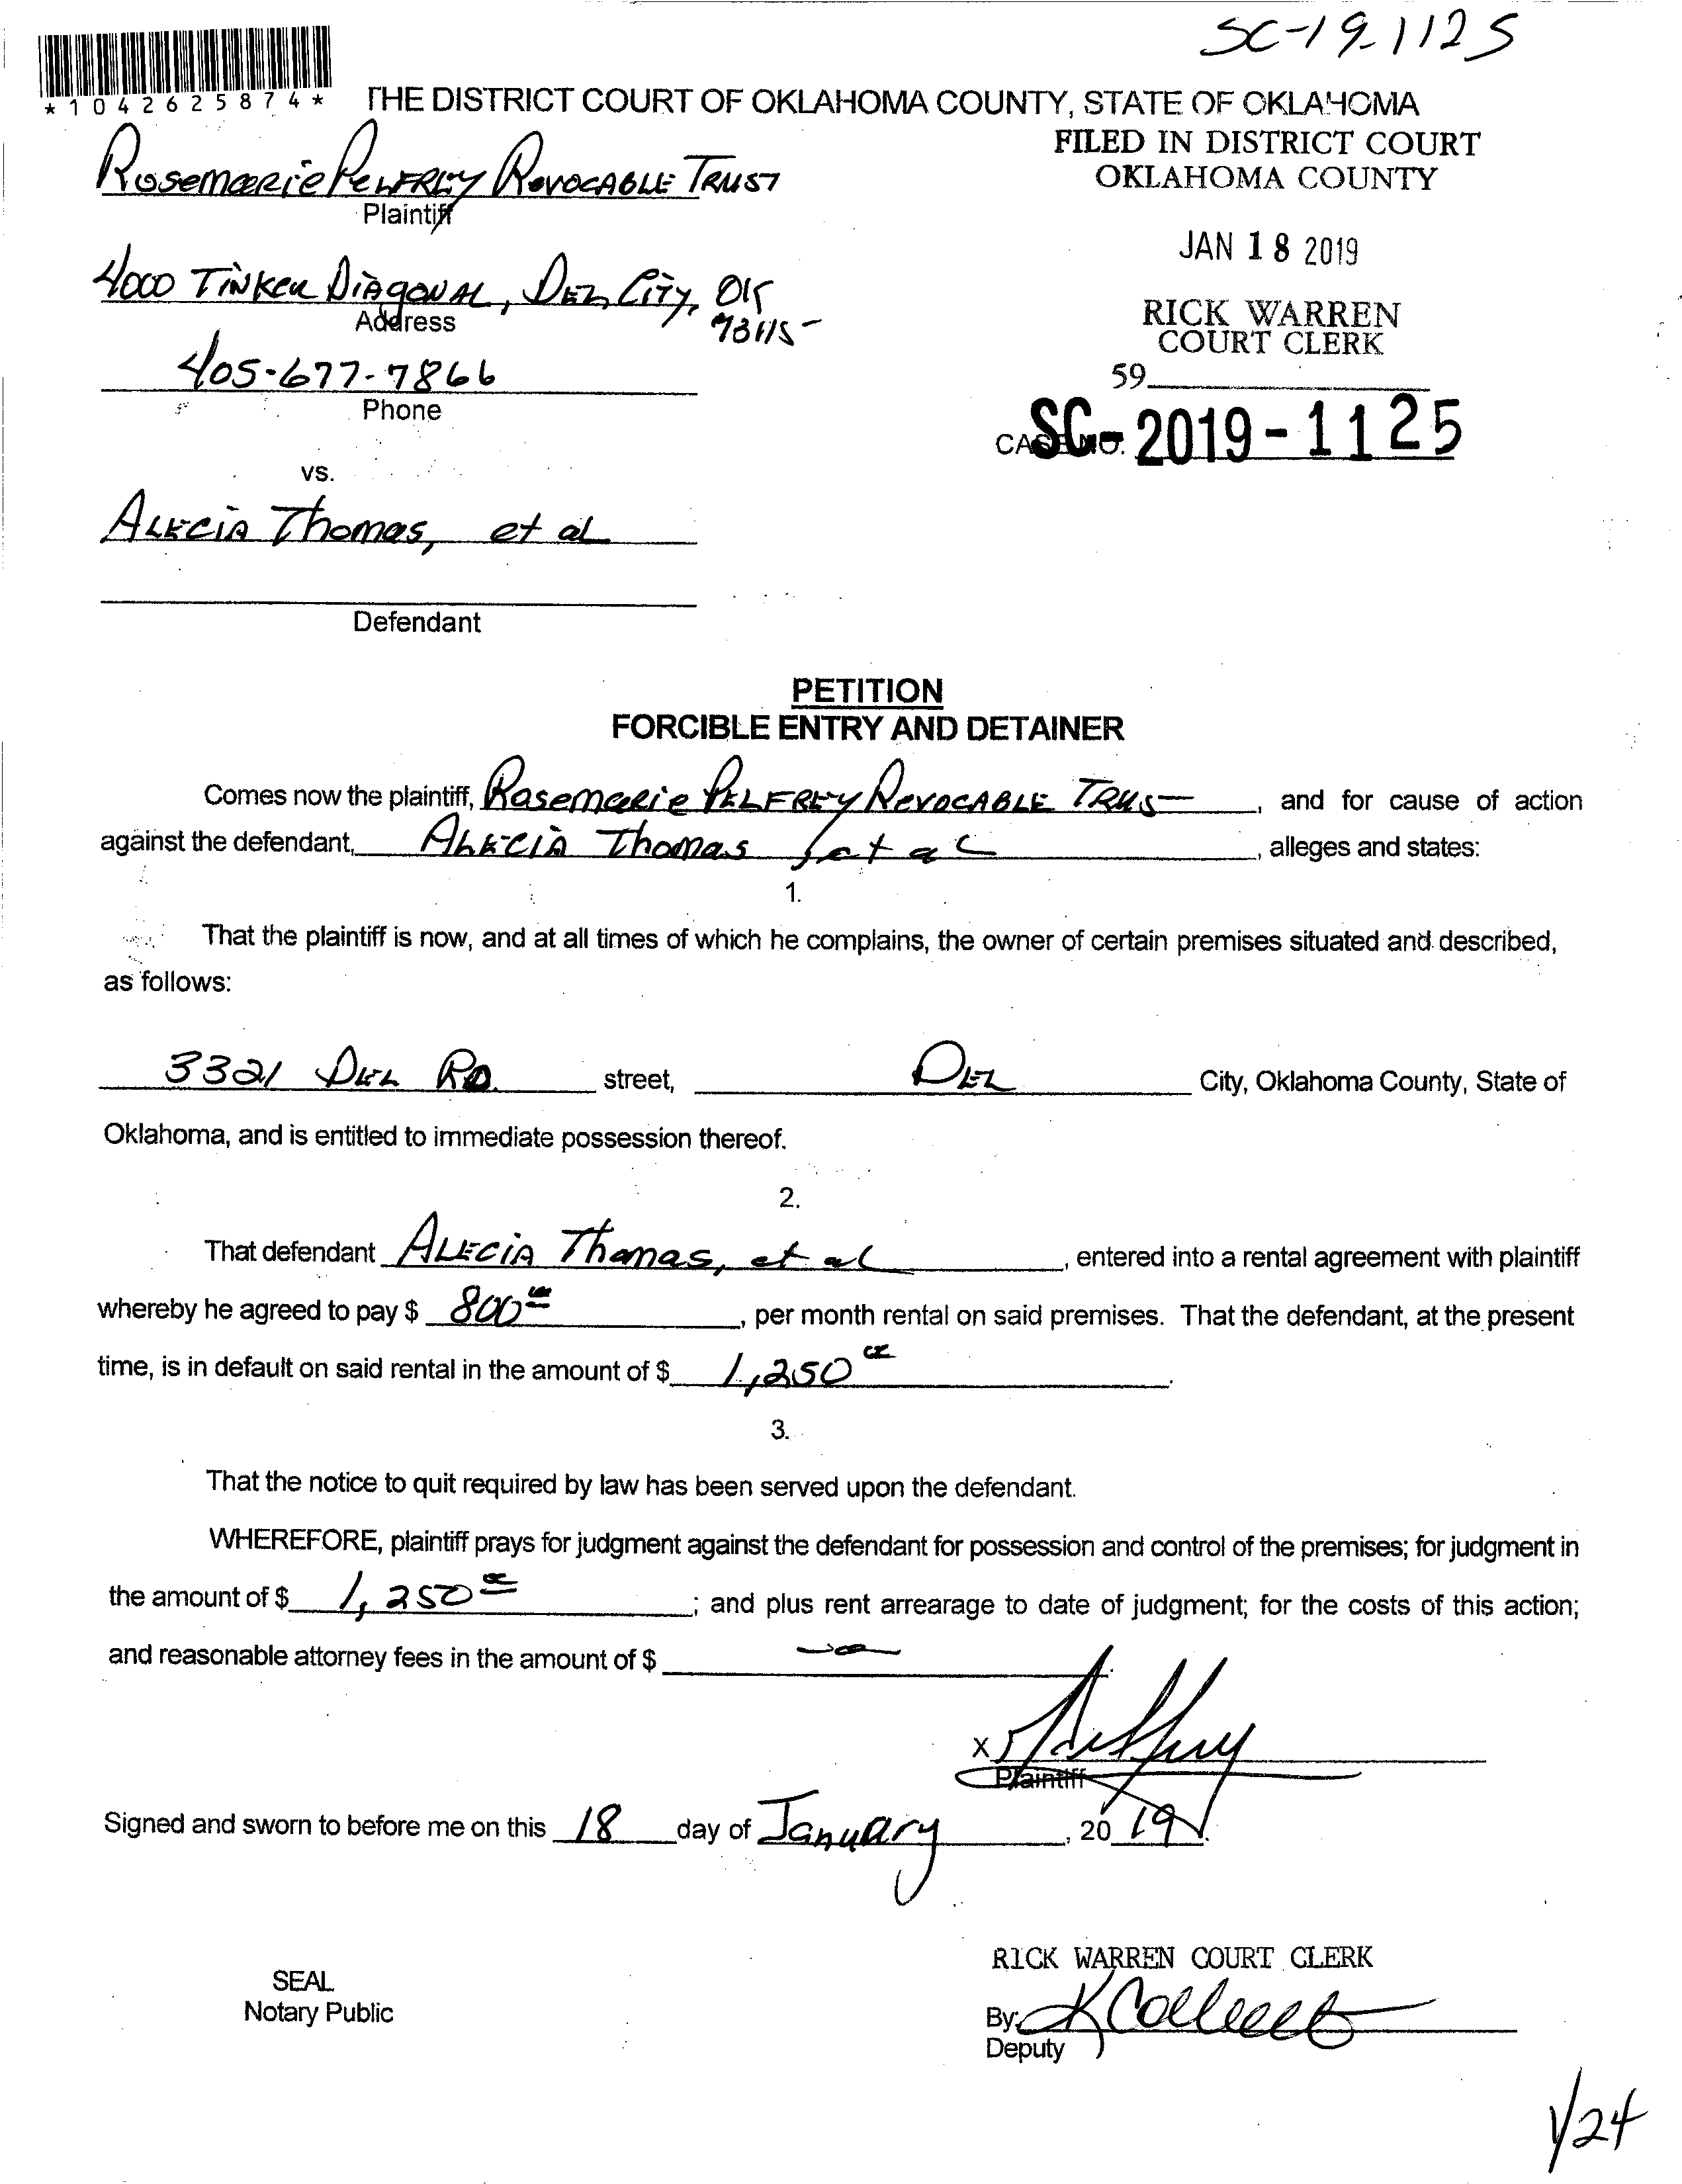 SC-19-1125
*1042625874*
THE DISTRICT COURT OF OKLAHOMA COUNTY, STATE OF OKLAHOMA
FILED IN DISTRICT COURT
OKLAHOMA COUNTY
Rosemarie Pelfrey Revocable Trust
Plaintiff
JAN 18 2019
4000 Tinker Diagonal, Del City, OK
73115
Address
RICK WARREN
COURT CLERK
405-677-7866
Phone
59
CASE NO. SC-2019-1125
vs.
Alecia Thomas, et al
Defendant
PETITION
FORCIBLE ENTRY AND DETAINER
Comes now the plaintiff, Rosemarie Pelfrey Revocable Trust, and for cause of action
against the defendant, Alecia Thomas, et al, alleges and states:
1.
That the plaintiff is now, and at all times of which he complains, the owner of certain premises situated and described,
as follows:
3321 Del Rd. street, Del City, Oklahoma County, State of
Oklahoma, and is entitled to immediate possession thereof.
2.
That defendant Alecia Thomas, et al, entered into a rental agreement with plaintiff
whereby he agreed to pay $ 800 00, per month rental on said premises. That the defendant, at the present
time, is in default on said rental in the amount of $ 1,250 00.
3.
That the notice to quit required by law has been served upon the defendant.
WHEREFORE, plaintiff prays for judgment against the defendant for possession and control of the premises; for judgment in
the amount of $ 1,250 00; and plus rent arrearage to date of judgment; for the costs of this action;
and reasonable attorney fees in the amount of $
X
Plaintiff
Signed and sworn to before me on this 18 day of January, 2019.
RICK WARREN COURT CLERK
SEAL
Notary Public
By:
Deputy
1/24